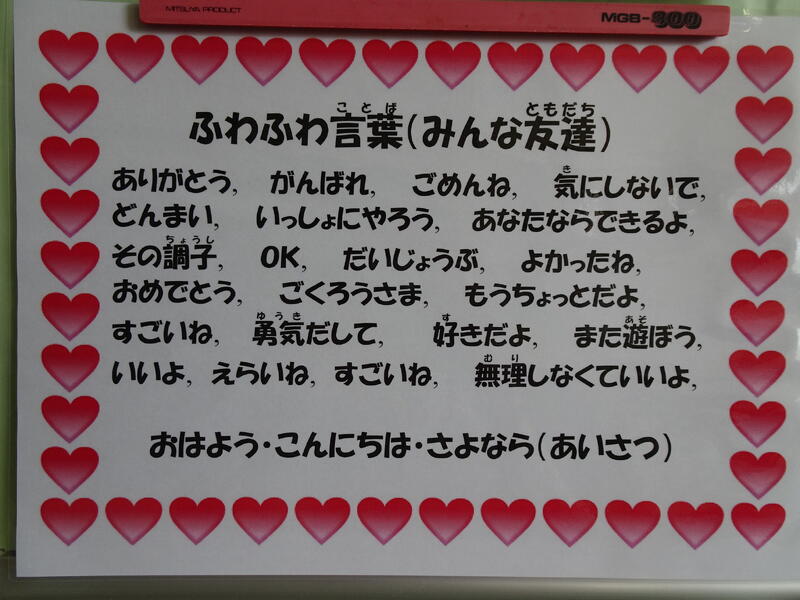 MITSUYA PRODUCT
MGB-800
ふわふわ言葉(みんな友達)
ことば
ともだち
ありがとう, がんばれ, ごめんね, 気にしないで,
き
どんまい, いっしょにやろう, あなたならできるよ,
その調子, OK, だいじょうぶ, よかったね,
ちょうし
おめでとう, ごくろうさま, もうちょっとだよ,
すごいね, 勇気だして, 好きだよ, また遊ぼう,
ゆうき
す
あそ
いいよ, えらいね, すごいね, 無理しなくていいよ,
むり
おはよう・こんにちは・さよなら(あいさつ)